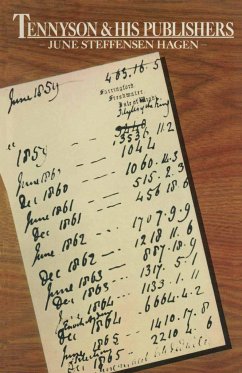 TENNYSON & HIS PUBLISHERS
JUNE STEFFENSEN HAGEN
June 1859 463.16.5
Farringford.
Freshwater.
Idylls of the King
1859
June 1860 1044
Dec 1860 1060.11.3
June 1861 515.2.3
Dec 1861 456.18.6
June 1862 1707.9.9
Dec 1862 1218.11.6
June 1863 887.18.9
Dec 1863 1317.5.1
June 1864 1133.1.11
Dec 1864 6664.4.2
June 1865 1410.17.8
Dec 1865 2210.4.6